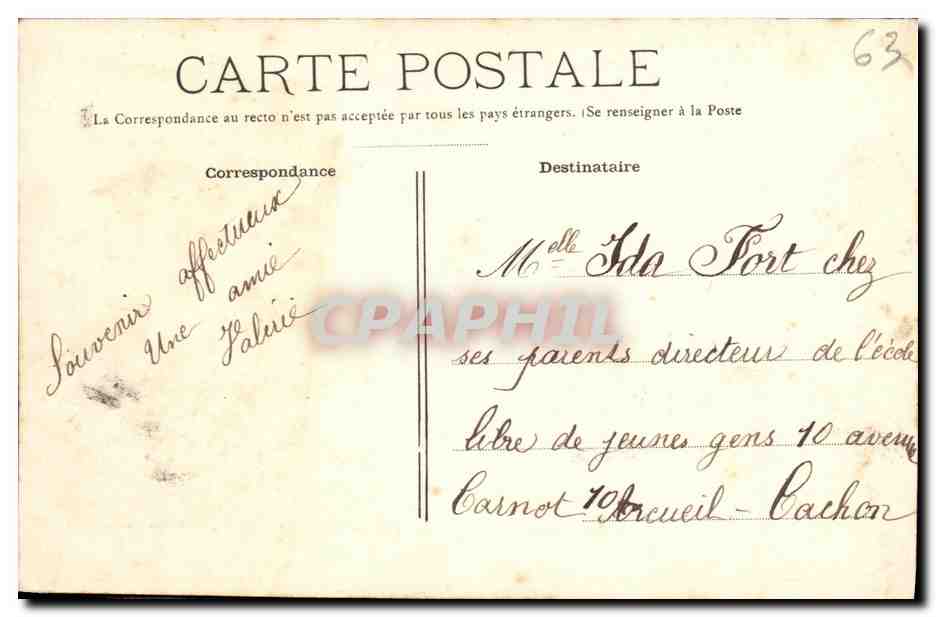 63
CARTE POSTALE
La Correspondance au recto n'est pas acceptée par tous les pays étrangers. (Se renseigner à la Poste
Correspondance
Destinataire
Souvenir affectueux
Une amie
Valérie
Melle Ida Fort chez
ses parents directeur de l'école
libre de jeunes gens 10 avenue
Carnot 10 Arcueil - Cachon
CPAPHIL